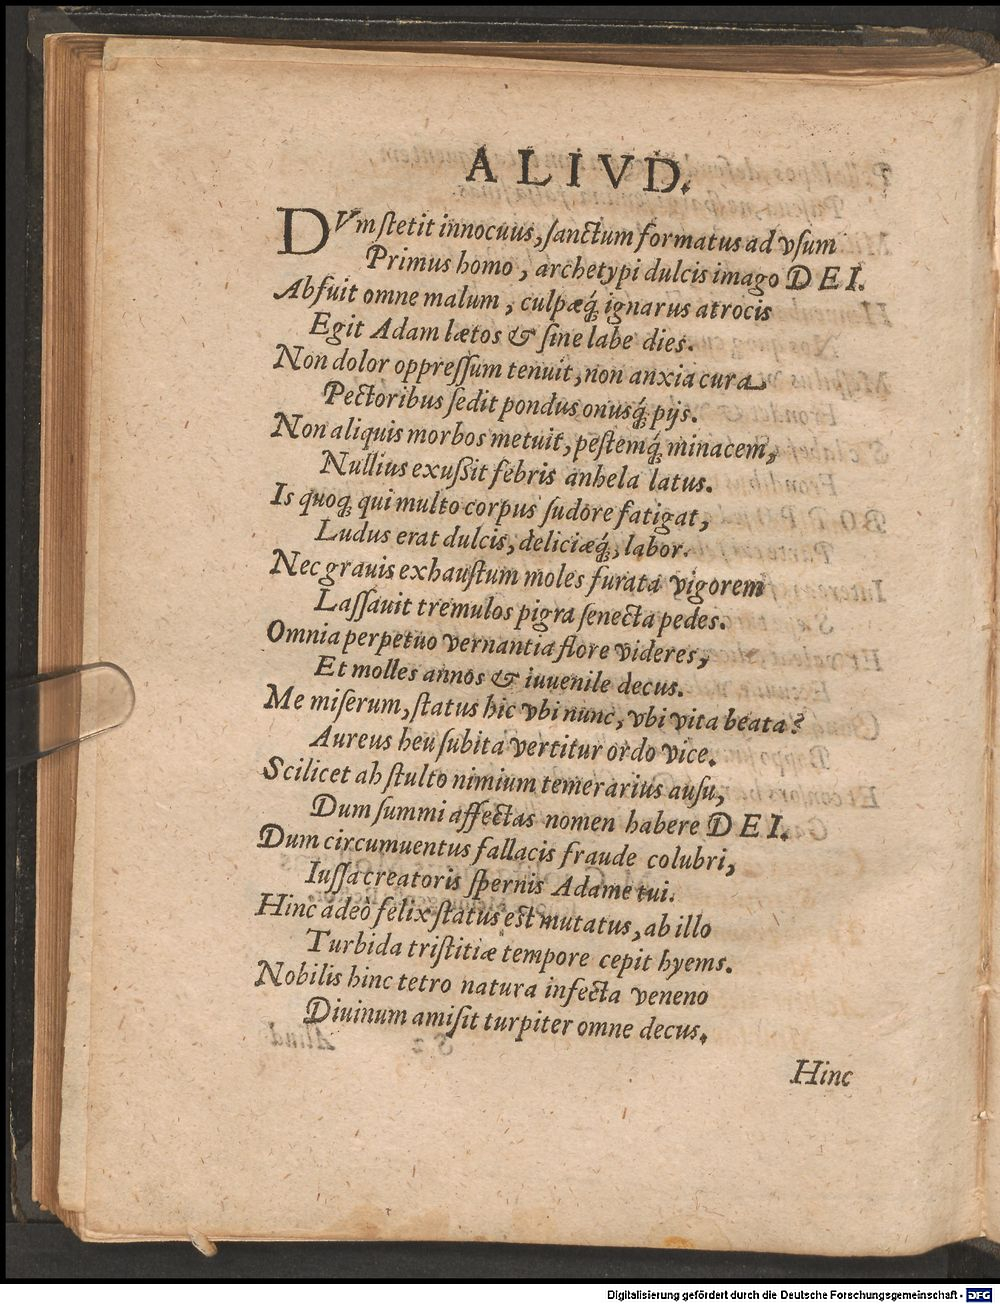 ALIVD.
DVm ſtetit innocuus, ſanctum formatus ad vſum
Primus homo, archetypi dulcis imago DEI.
Abfuit omne malum, culpæq́; ignarus atrocis
Egit Adam lætos & ſine labe dies.
Non dolor oppreſſum tenuit, non anxia cura
Pectoribus ſedit pondus onusq́; pijs.
Non aliquis morbos metuit, peſtemq́; minacem,
Nullius exuſsit febris anhela latus.
Is quoq; qui multo corpus ſudore fatigat,
Ludus erat dulcis, deliciæq́;, labor.
Nec grauis exhauſtum moles furata vigorem
Laſſauit tremulos pigra ſenecta pedes.
Omnia perpetuo vernantia flore videres,
Et molles annos & iuuenile decus.
Me miſerum, ſtatus hic vbi nunc, vbi vita beata?
Aureus heu ſubita vertitur ordo vice.
Scilicet ah ſtulto nimium temerarius auſu,
Dum ſummi affectas nomen habere DEI.
Dum circumuentus fallacis fraude colubri,
Iuſſa creatoris ſpernis Adame tui.
Hinc adeò felix ſtatus est mutatus, ab illo
Turbida triſtitiæ tempore cepit hyems.
Nobilis hinc tetro natura infecta veneno
Diuinum amiſit turpiter omne decus.
Hinc
Digitalisierung gefördert durch die Deutsche Forschungsgemeinschaft - DFG